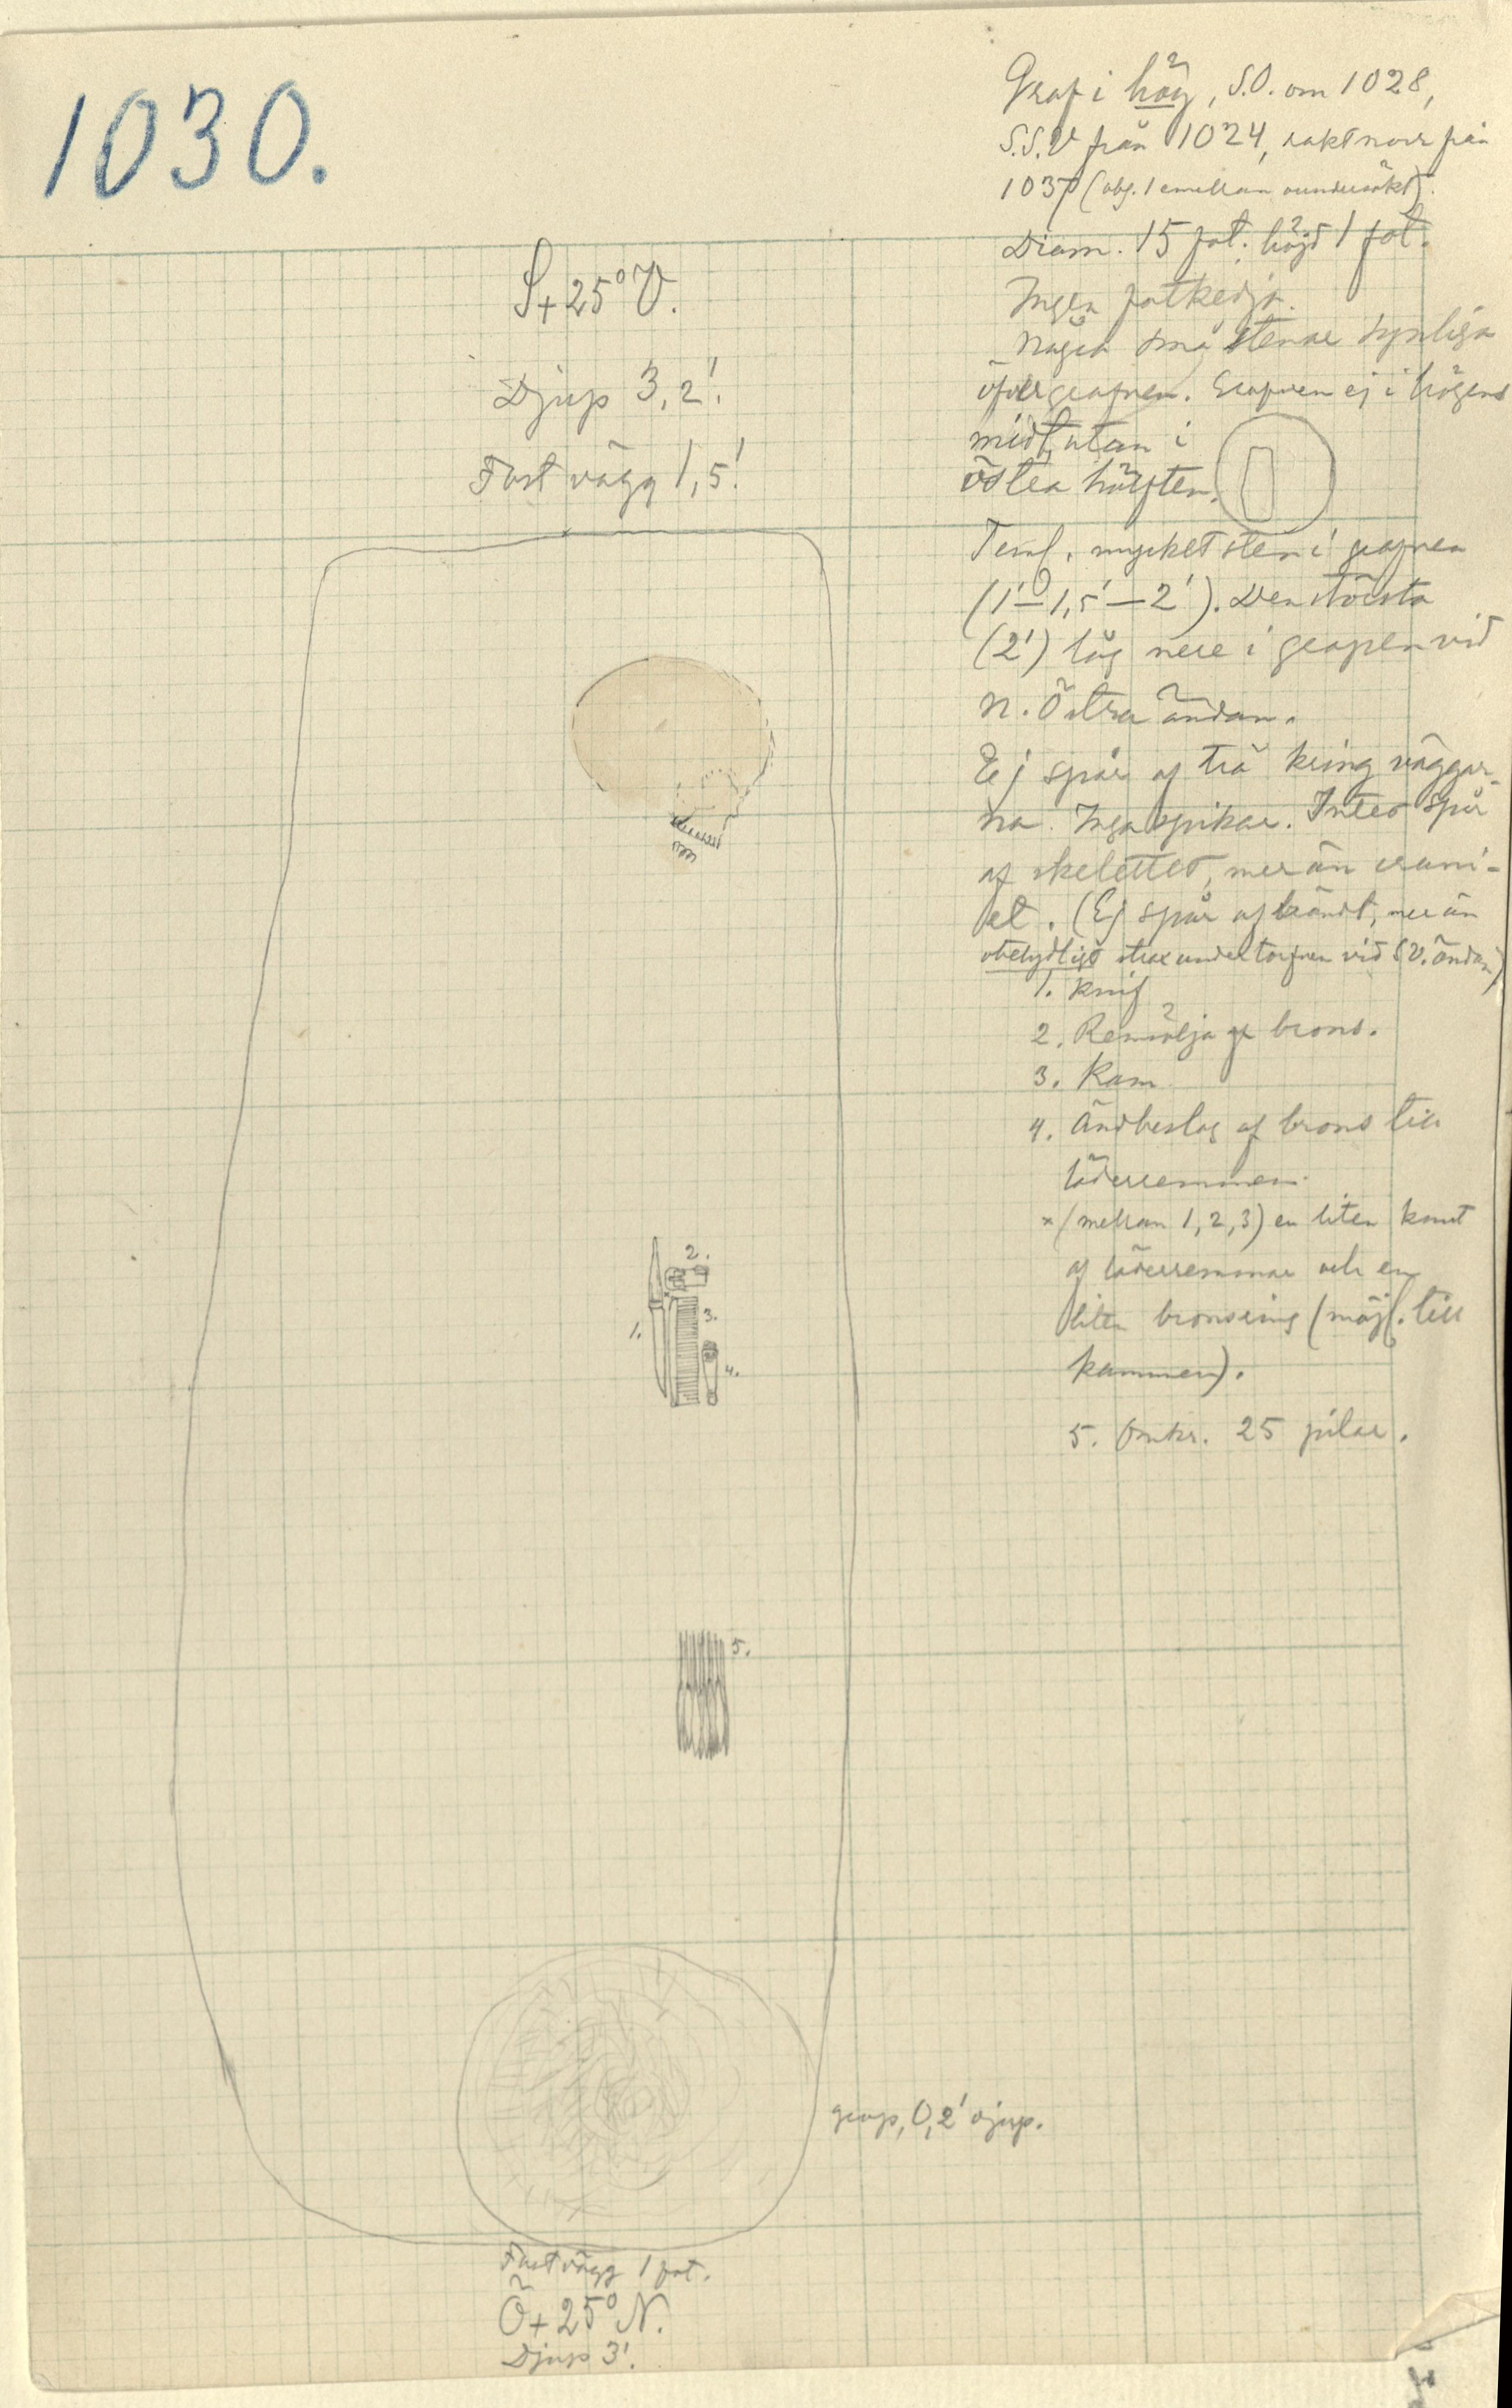 1030.
Graf i hög, S.O. om 1028,
S.S.V från 1024, rakt norr från
1037 (obs. 1 emellan oundersökt).
Diam. 15 fot. höjd 1 fot.
Ingen fotkedja.
Några små stenar synliga
öfver grafven. Grafven ej i högens
midt, utan i
östra hälften.
Teml. mycket sten i grafven
(1'–1,5'–2'). Den största
(2') låg nere i grafven vid
N. Östra ändan.
Ej spår af trä kring väggar-
na. Inga spikar. Intet spår
af skelettet, mer än crani-
et. (Ej spår af brändt, mer än
obetydligt strax under torfven vid S.V. ändan)
1. Knif
2. Remsölja af brons.
3. Kam
4. Ändbeslag af brons till
läderremmen.
× (mellan 1, 2, 3) en liten knut
af läderremmar och en
liten bronsring (möjl. till
kammen).
5. Omkr. 25 pilar.
S+25°V.
Djup 3,2'.
Fast vägg 1,5'.
2.
3.
1.
4.
5.
grop, 0,2' djup.
Fast vägg 1 fot.
Ö+25°N.
Djup 3'.